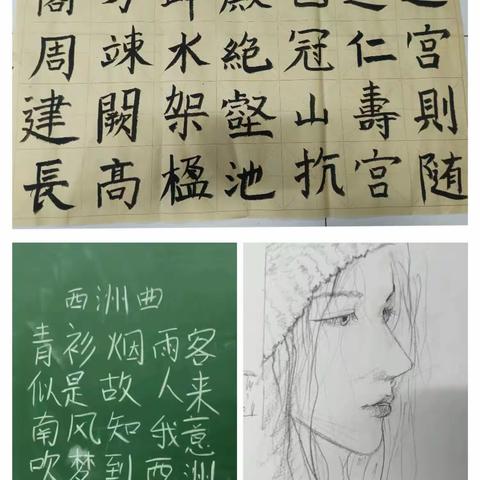 之宮則随
之仁壽宮
也冠山抗
殿絶壑池
水架楹
竦闕高
閣周建長
西洲曲
青衫烟雨客
似是故人来
南风知我意
吹梦到西洲